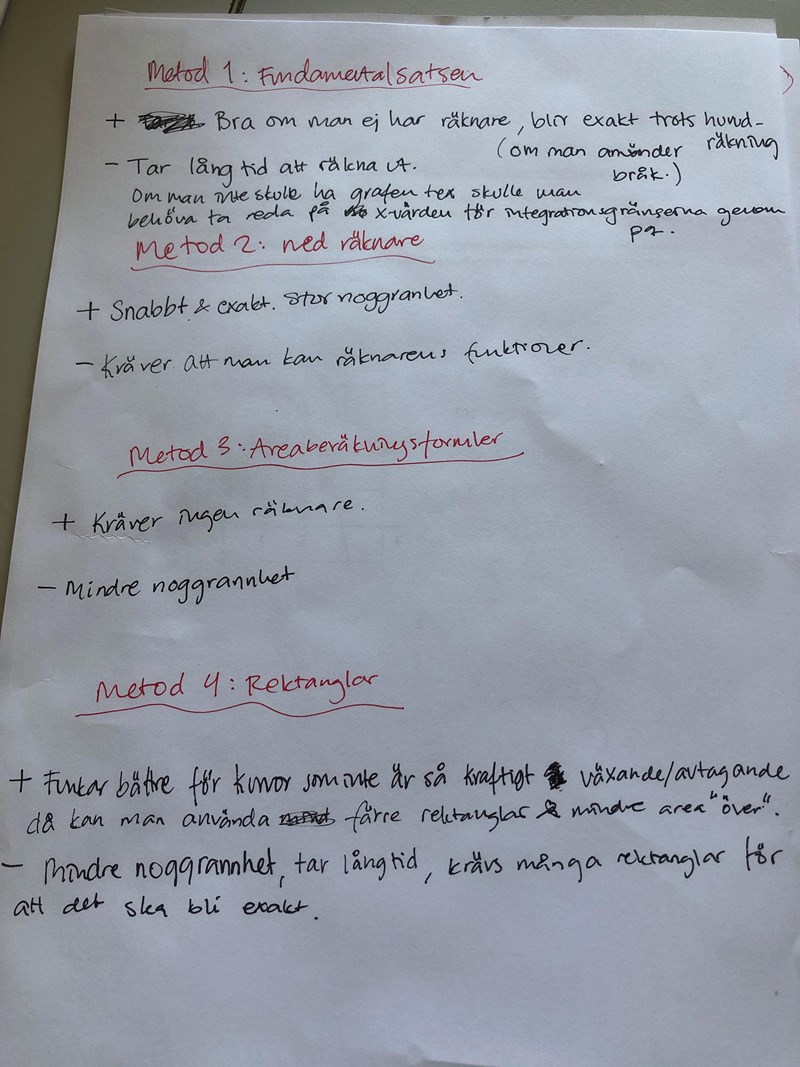 Metod 1: Fundamentalsatsen
+ Bra om man ej har räknare, blir exakt trots hund-
räkning
(om man använder
bråk.)
- Tar lång tid att räkna ut.
Om man inte skulle ha grafen tex skulle man
behöva ta reda på x-värden för integrationsgränserna genom
pq.
Metod 2: med räknare
+ Snabbt & exakt. Stor noggranhet.
- Kräver att man kan räknarens funktioner.
Metod 3: Areaberäkningsformler
+ Kräver ingen räknare.
- Mindre noggrannhet
Metod 4: Rektanglar
+ Funkar bättre för kurvor som inte är så kraftigt växande/avtagande
då kan man använda färre rektanglar & mindre area "över".
- Mindre noggrannhet, tar lång tid, krävs många rektanglar för
att det ska bli exakt.